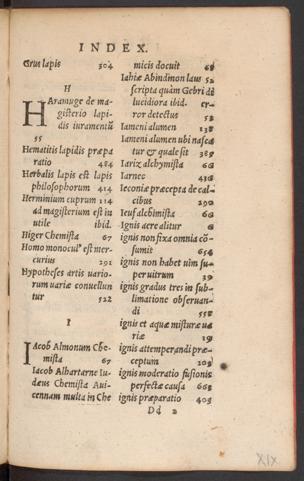 INDEX.
Grus lapis 504
H
HAramuge de ma-
gisterio lapi-
dis iuramentũ
55
Hematitis lapidis præpa
ratio 484
Herbalis lapis est lapis
philosophorum 414
Herminium cuprum 114
ad magisterium est in
utile ibid.
Higer Chemista 67
Homo monocul⁹ est mer-
curius 291
Hypotheses artis uario-
rum uariæ conuellun
tur 522
I
Iacob Almonum Che-
mista 67
Iacob Alhartarne Iu-
dæus Chemista Aui-
cennam multa in Che
micis docuit
Iahiæ Abindinon laus 52
scripta quàm Gebri di
lucidiora ibid. er-
ror detectus 52
Iameni alumen
Iameni alumen ubi nasca
tur & quale sit
Iariz alchymista
Iarnec
Ieconiæ præcepta de cal-
cibus
Iesus alchimista
Ignis aere alitur
ignis non fixa omnia cõ-
sumit
ignis non habet uim su-
per uitrum
ignis gradus tres in sub-
limatione obseruan-
di
ignis et aquæ misturæ ua
riæ
ignis attemperandi præ-
ceptum
ignis moderatio fusionis
perfectæ causa
ignis præparatio
Dd 2
XIX